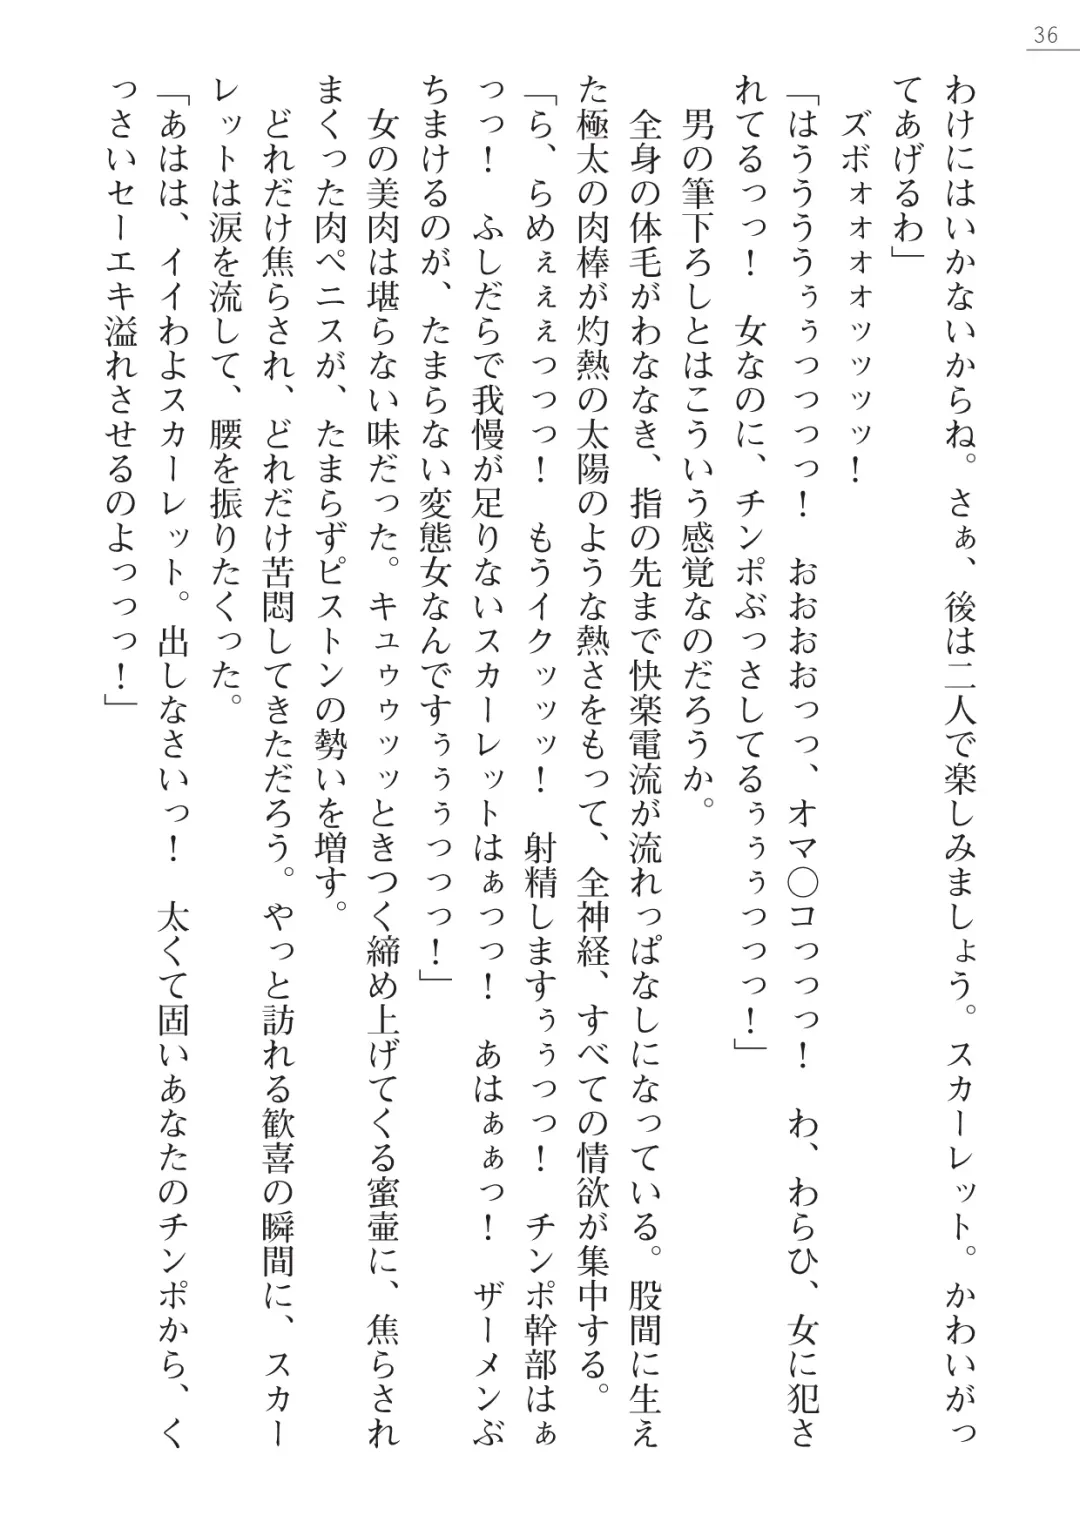 36
わけにはいかないからね。さぁ、後は二人で楽しみましょう。スカーレット。かわいがっ
てあげるわ」
　ズボォォォォッッッッ！
「はうううぅぅっっっっ！　おおおおっっ、オマ〇コっっっ！　わ、わらひ、女に犯さ
れてるっっ！　女なのに、チンポぶっさしてるぅぅぅっっっ！」
　男の筆下ろしとはこういう感覚なのだろうか。
　全身の体毛がわななき、指の先まで快楽電流が流れっぱなしになっている。股間に生え
た極太の肉棒が灼熱の太陽のような熱さをもって、全神経、すべての情欲が集中する。
「ら、らめぇぇぇっっっ！　もうイクッッッ！　射精しますぅぅっっ！　チンポ幹部はぁ
っっ！　ふしだらで我慢が足りないスカーレットはぁっっ！　あはぁぁっ！　ザーメンぶ
ちまけるのが、たまらない変態女なんですぅぅぅっっっ！」
　女の美肉は堪らない味だった。キュゥゥッッときつく締め上げてくる蜜壷に、焦らされ
まくった肉ペニスが、たまらずピストンの勢いを増す。
　どれだけ焦らされ、どれだけ苦悶してきただろう。やっと訪れる歓喜の瞬間に、スカー
レットは涙を流して、腰を振りたくった。
「あはは、イイわよスカーレット。出しなさいっ！　太くて固いあなたのチンポから、く
っさいセーエキ溢れさせるのよっっっ！」